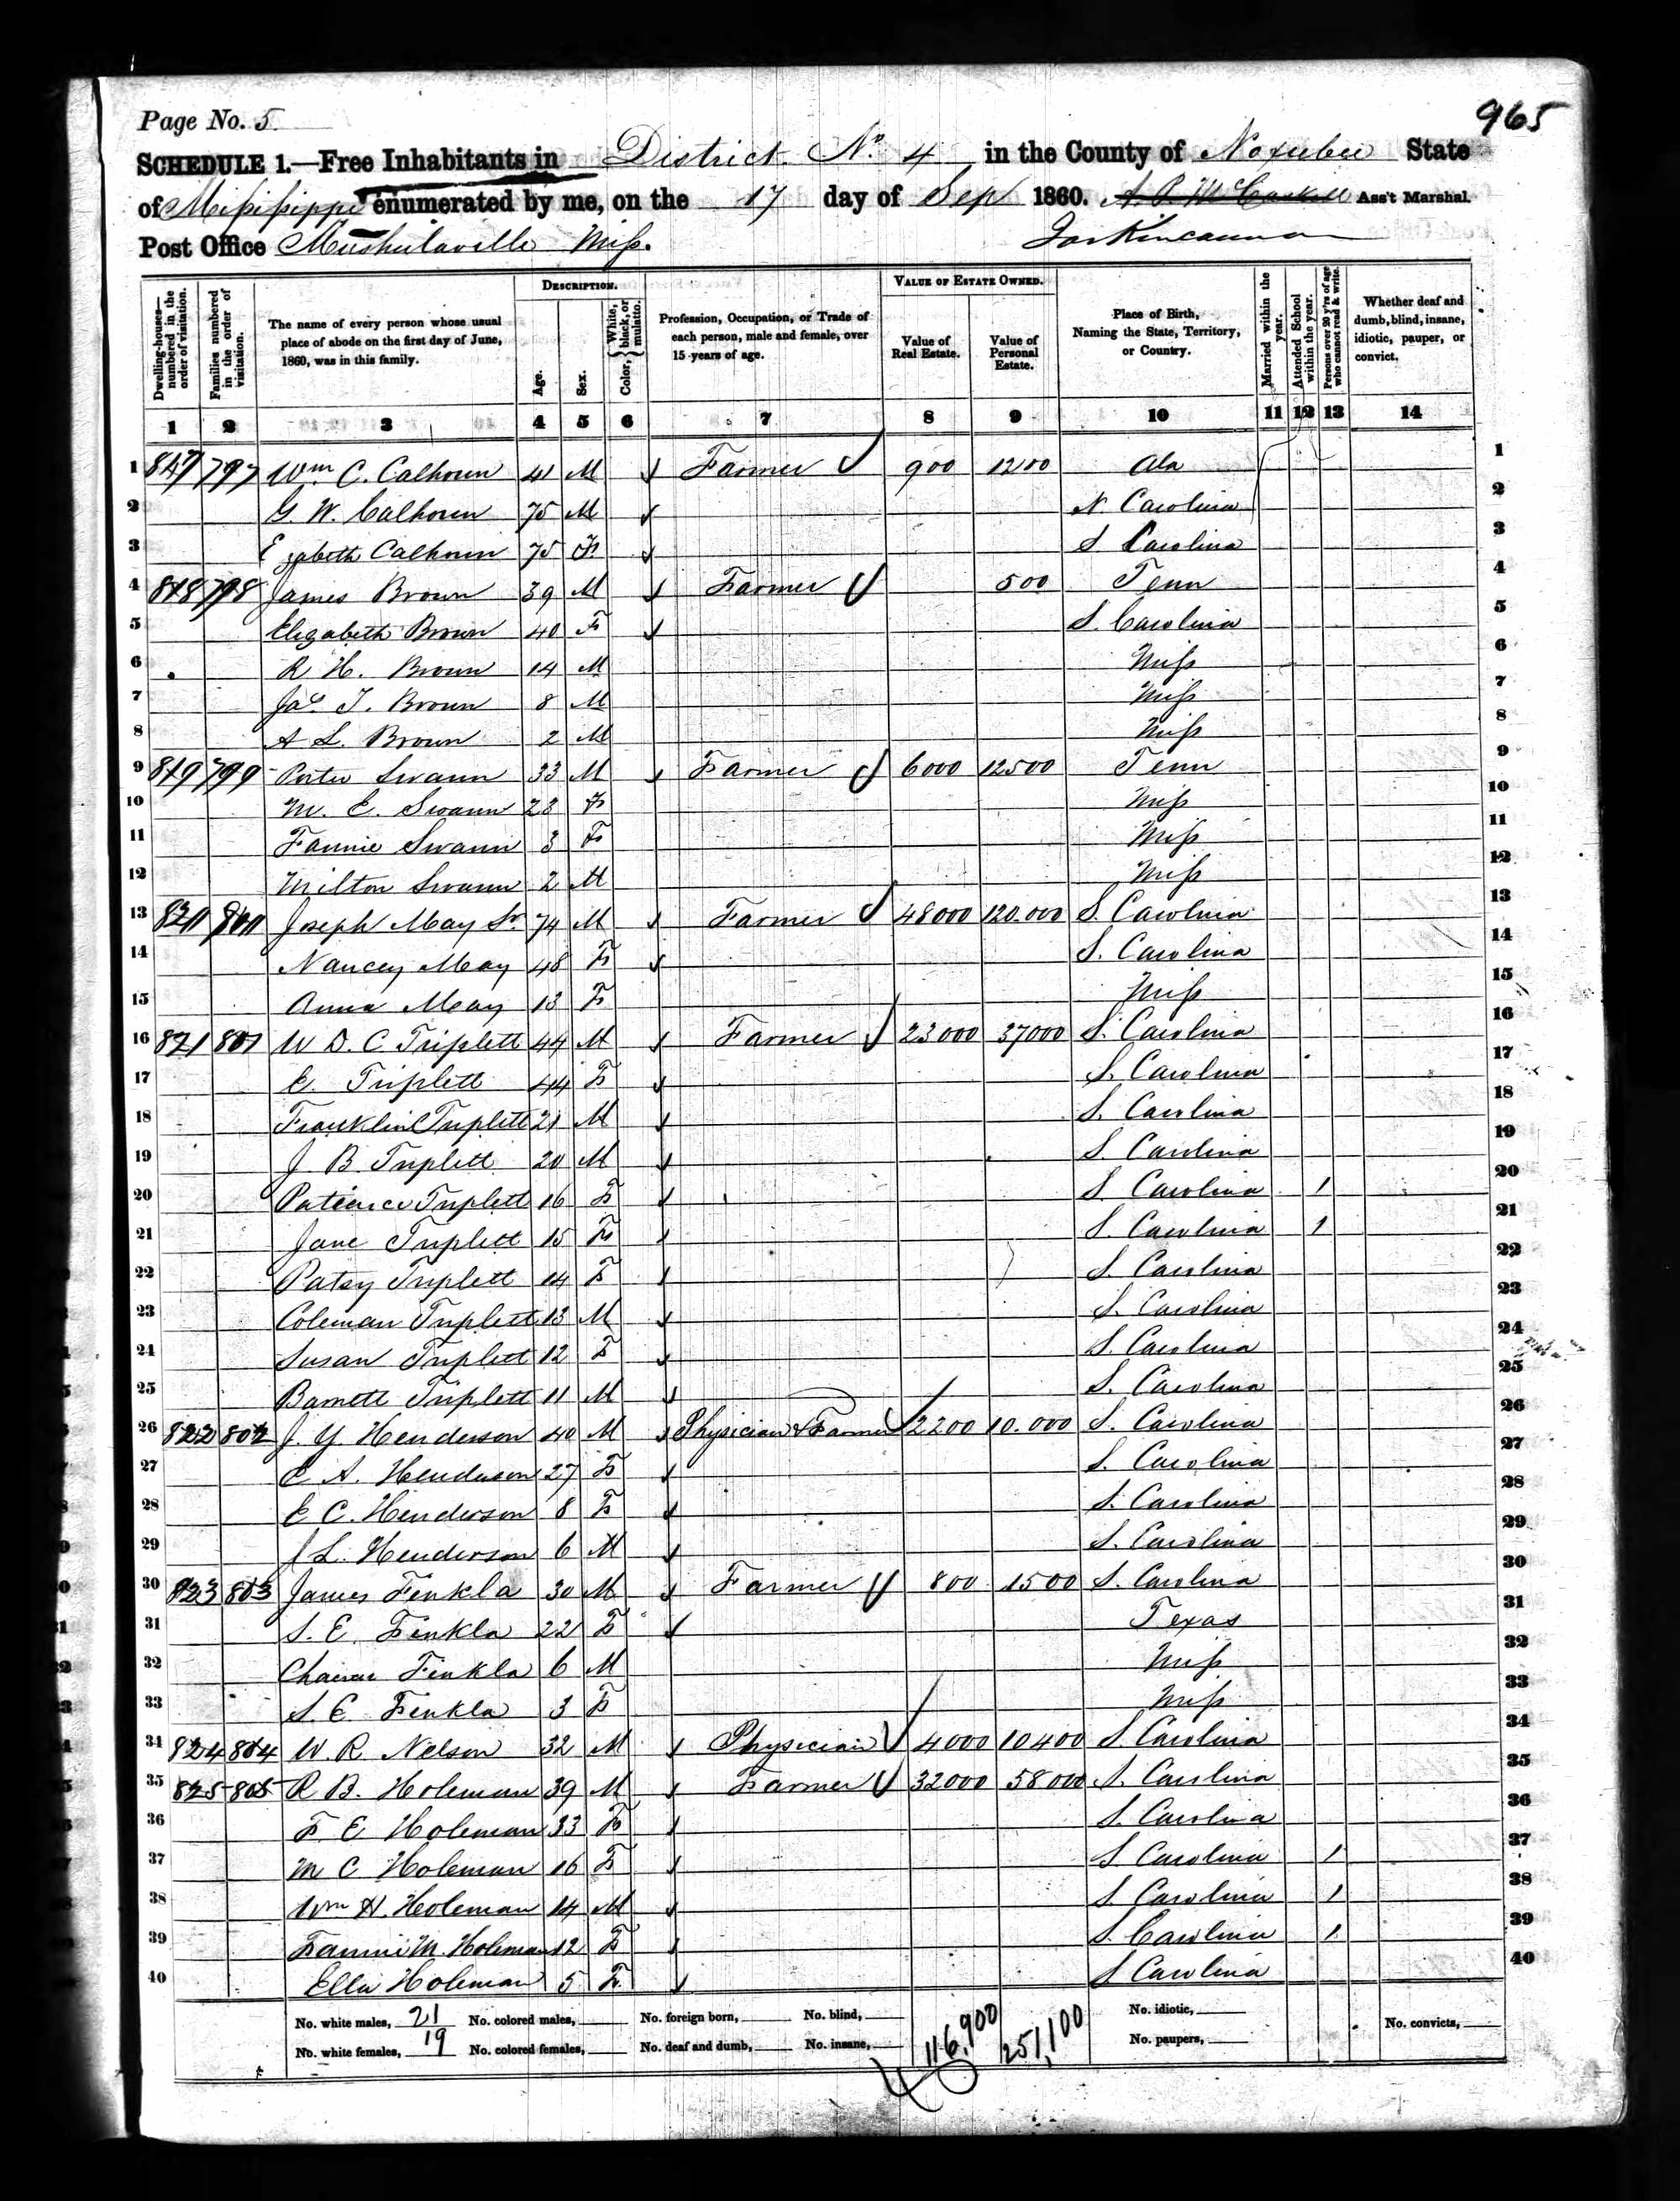 965
Page No. 5.
SCHEDULE 1.—Free Inhabitants in District No. 4 in the County of Noxubee State
of Mississippi enumerated by me, on the 17 day of Sep 1860. Ass't Marshal.
Post Office Mushulaville Miss.
DESCRIPTION. VALUE OF ESTATE OWNED.
Dwelling-houses—numbered in the order of visitation.
Families numbered in the order of visitation.
The name of every person whose usual place of abode on the first day of June, 1860, was in this family.
Age.
Sex.
Color, White, black, or mulatto.
Profession, Occupation, or Trade of each person, male and female, over 15 years of age.
Value of Real Estate.
Value of Personal Estate.
Place of Birth, Naming the State, Territory, or Country.
Married within the year.
Attended School within the year.
Persons over 20 y'rs of age who cannot read & write.
Whether deaf and dumb, blind, insane, idiotic, pauper, or convict.
1 2 3 4 5 6 7 8 9 10 11 12 13 14
1 817 797 Wm C. Calhoun 41 M Farmer 900 1200 Ala 1
2 G. W. Calhoun 75 M N Carolina 2
3 Calhoun 75 F S Carolina 3
4 818 798 James Brown 39 M Farmer 500 Tenn 4
5 Elizabeth Brown 40 F S. Carolina 5
6 R H. Brown 14 M Miss 6
7 Jas. T. Brown 8 M Miss 7
8 A L. Brown 2 M Miss 8
9 819 799 Porter Swann 33 M Farmer 6000 12500 Tenn 9
10 M. E. Swann 23 F Miss 10
11 Fannie Swann 3 F Miss 11
12 Milton Swann 2 M Miss 12
13 820 800 Joseph May Sr. 74 M Farmer 48000 120.000 S. Carolina 13
14 Nancey May 48 F S. Carolina 14
15 Anna May 13 F Miss 15
16 821 801 W D. C. Triplett 44 M Farmer 23000 37000 S. Carolina 16
17 E. Triplett 44 F S. Carolina 17
18 Franklin Triplett 21 M S. Carolina 18
19 J B Triplett 20 M S. Carolina 19
20 Patience Triplett 16 F S Carolina 1 20
21 Jane Triplett 15 F S. Carolina 1 21
22 Patsy Triplett 14 F S. Carolina 22
23 Coleman Triplett 13 M S. Carolina 23
24 Susan Triplett 12 F S. Carolina 24
25 Barnett Triplett 11 M S. Carolina 25
26 822 802 J. Y. Henderson 40 M Physician & Farmer 2200 10.000 S. Carolina 26
27 E A. Henderson 27 F S. Carolina 27
28 E C. Henderson 8 F S. Carolina 28
29 J L. Henderson 6 M S. Carolina 29
30 823 803 James Finkla 30 M Farmer 800 1500 S. Carolina 30
31 S. E. Finkla 22 F Texas 31
32 Finkla 6 M Miss 32
33 S. E. Finkla 3 F Miss 33
34 824 804 W. R. Nelson 32 M Physician 4000 10400 S. Carolina 34
35 825 805 R B. Holeman 39 M Farmer 32000 58000 S. Carolina 35
36 F E Holeman 33 F S. Carolina 36
37 M C Holeman 16 F S Carolina 1 37
38 Wm H. Holeman 14 M S. Carolina 1 38
39 Fannie M. Holeman 12 F S. Carolina 1 39
40 Ella Holeman 5 F. S Carolina 40
No. white males, 21 No. colored males, No. foreign born, No. blind, 116,900 251,100 No. idiotic, No. convicts,
No. white females, 19 No. colored females, No. deaf and dumb, No. insane, No. paupers,